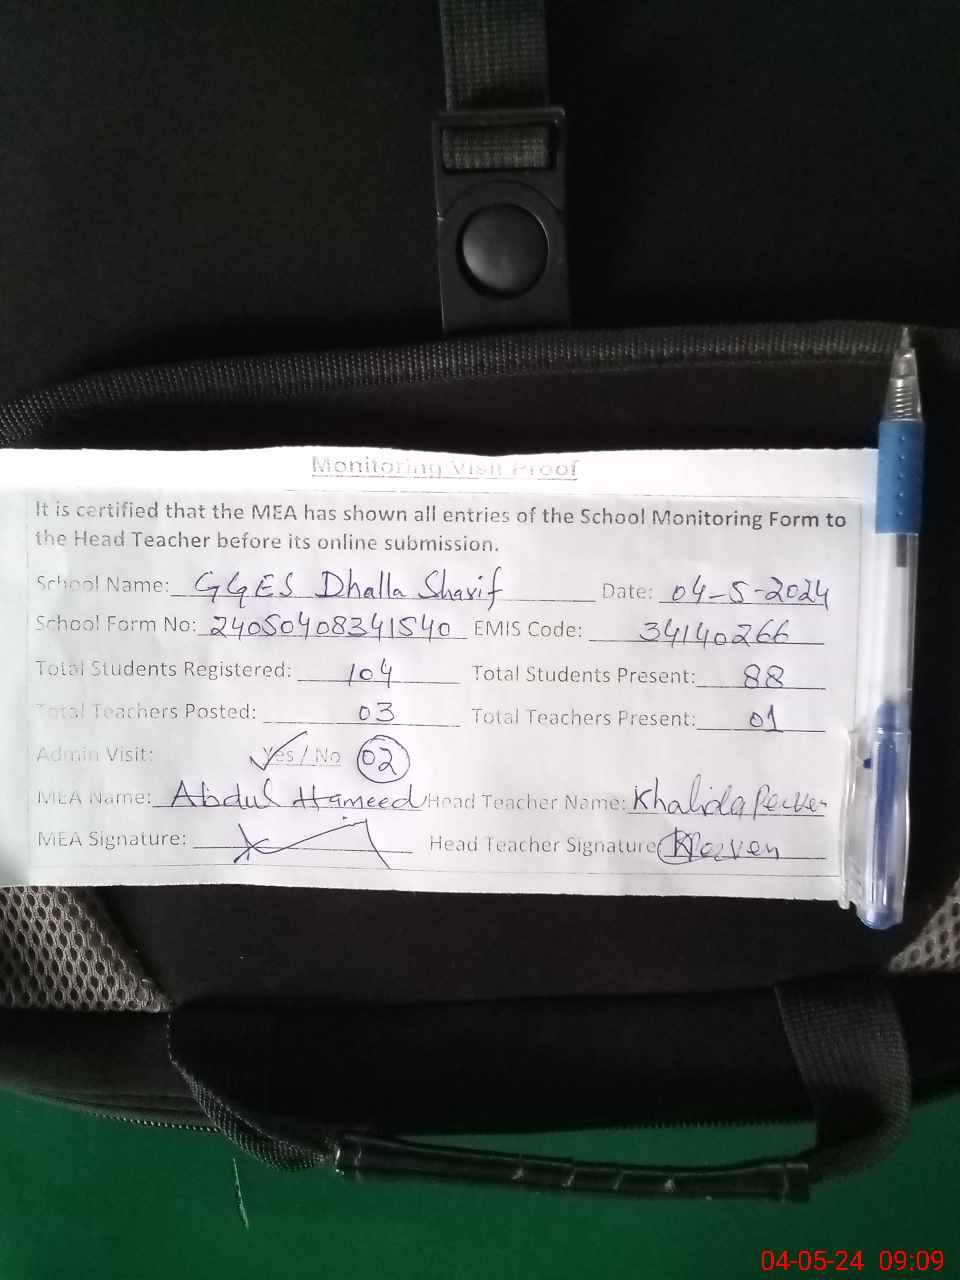 Monitoring Visit Proof
It is certified that the MEA has shown all entries of the School Monitoring Form to
the Head Teacher before its online submission.
School Name: GGES Dhalla Sharif Date: 04-5-2024
School Form No: 24050408341540 EMIS Code: 34140266
Total Students Registered: 104 Total Students Present: 88
Total Teachers Posted: 03 Total Teachers Present: 01
Admin Visit: Yes / No 02
MEA Name: Abdul Hameed Head Teacher Name: Khalida
MEA Signature: Head Teacher Signature
04-05-24 09:09